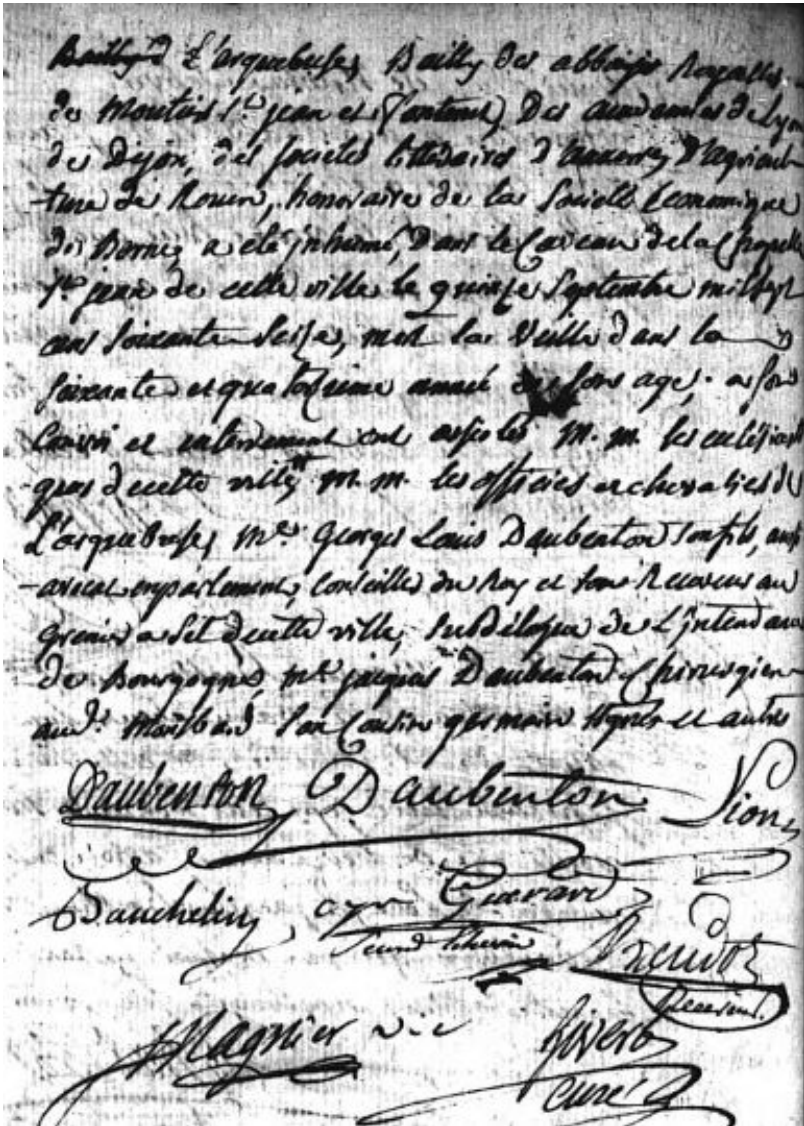 L'arquebuse, Bailly des abbaijes Royalles
de Moutier St. jean et fontenet, Des academies de Lyon
de Dijon, des societés littéraires d'auxerre, D'agricul-
-ture de Rouen, honoraire de la Société Economique
de Berne, a eté jnhumé, Dans le Caveau de la Chapelle
St. jean de cette ville le quinze Septembre mil sept
cens soixante Seize, mort la Veille dans la
soixante et quatorzieme année de son age, a son
Convoi et enterrement ont assistés M. M. les eclésiasti
ques de cette ville, M. M. les officiers et chevaliers de
L'arquebuse, Mre. Georges Louis Daubenton son fils, aussi
avocat en parlement, Conseiller du Roy et son Receveur au
grenier a Sel de cette ville, Subdélégué de L'jntendance
de Bourgogne, Mre. jacques Daubenton Chirurgien
aud. Montbard Son Cousin germain Signés et autres
Daubenton Daubenton
Guerard
Second Echevin
Magnier vic
curé